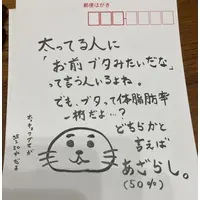 郵便はがき
太ってる人に
「お前ブタみたいだな」
って言う人いるよね。
でも、ブタって体脂肪率
一桁だよ…?
どちらかと
言えば
あざらし。
(50%)